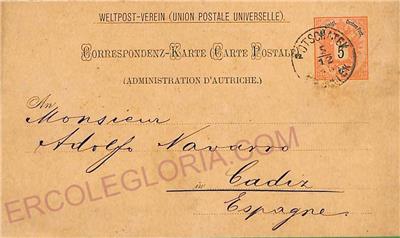 WELTPOST-VEREIN (UNION POSTALE UNIVERSELLE)
CORRESPONDENZ-KARTE CARTE POSTALE
(ADMINISTRATION D'AUTRICHE).
5
An
Monsieur
Adolfo Navarro
in Cadiz
Espagne
ERCOLEGLORIA.COM